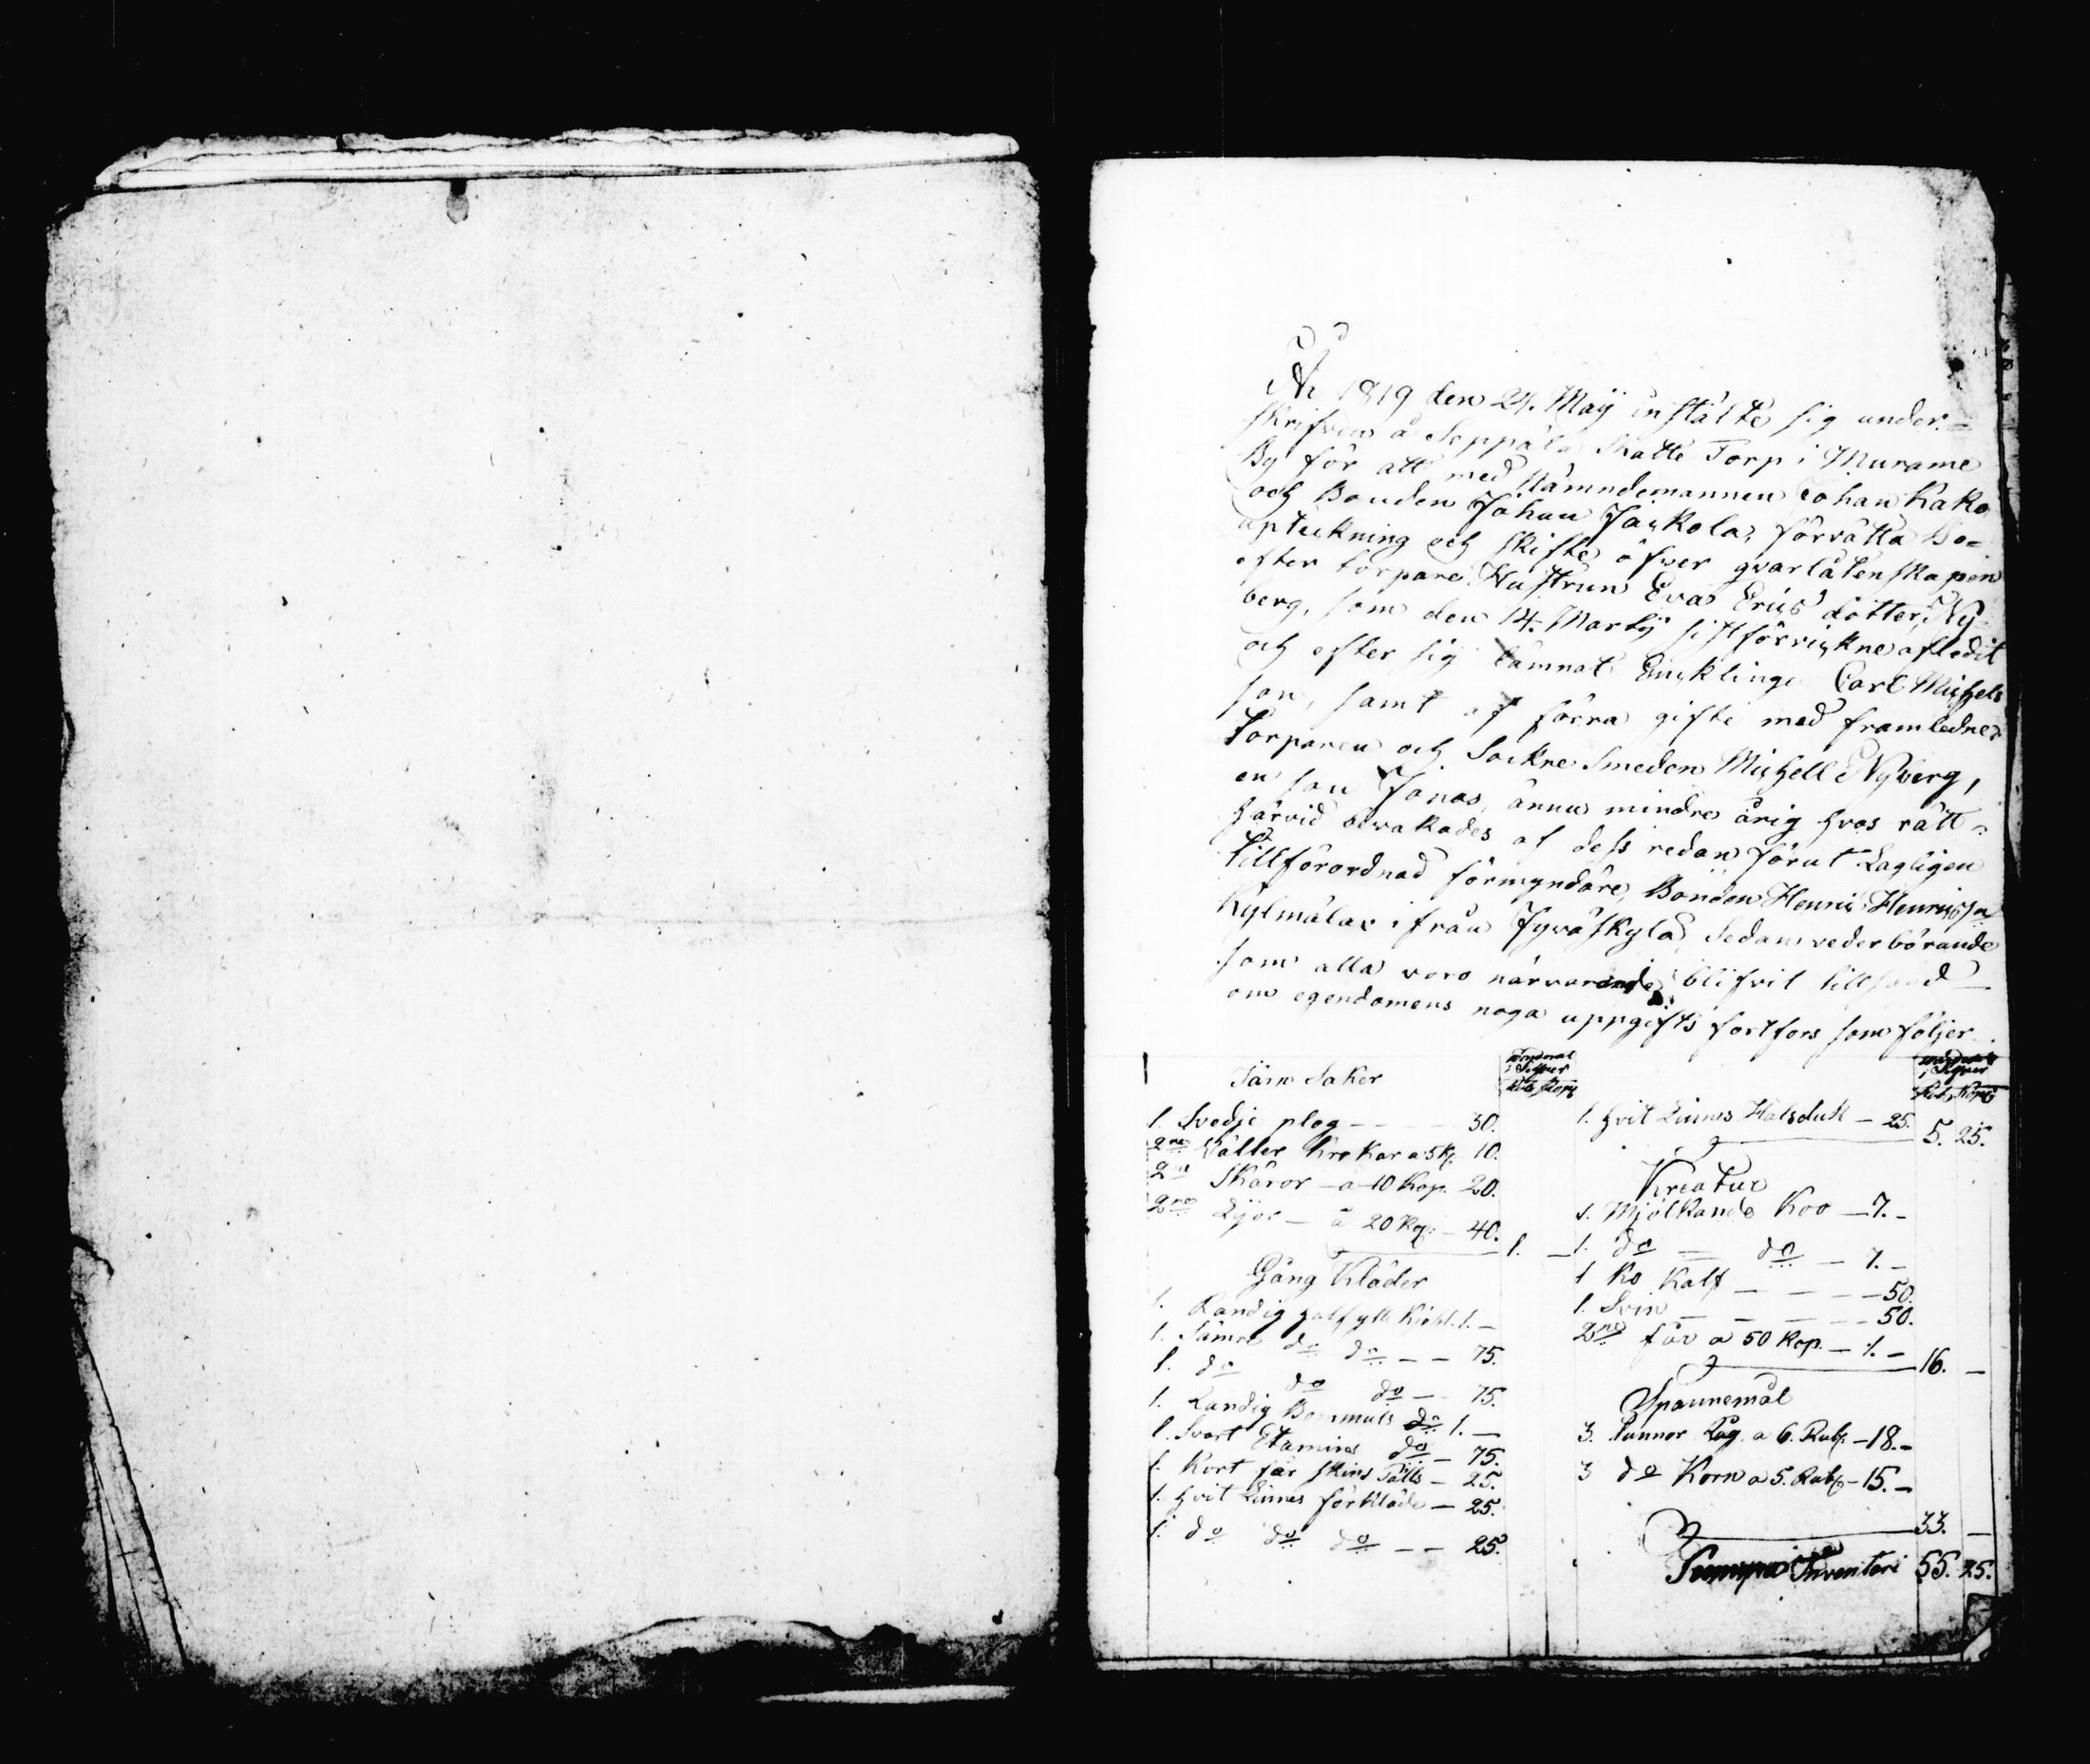 År 1819 den 24. Maÿ instälte sig under-
skrifven å Seppälä Skatte Torp i Murame
By för att med Nämndemannen Johan Kako
och Bonden Johan Jackola, förrätta Bo=
upteckning och skifte öfver qvarlåtenskapen
efter torpare Hustrun Eva Erics dotter Ny-
berg, som den 14. Martÿ sistförvickne afledit
och efter sig lämnat Encklinge Carl Michels
son, samt af förra gifte med framledne
Torparen och Sockne Smeden Michell Nyberg,
en son Jonas ännu mindre årig hvos rätt
härvid bevakades af dess redan förut Lagligen
tillförordnad förmyndare, Bonden Henric Henricsson
Kylmälax ifrån Jyväskylä, Sedan vederbörande
som alla voro närvarande, blifvit tillsand
om egendomens noga uppgifts fortfors som följer
Järn Saker
1. Svedje plog - - - 30.
2ne Välter Krokar a 5 K. 10.
2ne Skäror - a 10 Kop. 20.
2ne Lÿor - à 20 Kop. - 40.
1. -
Gång Kläder
1. Randig halfylle Kjohl. 1. -
1. Sämre do do - - 75.
1. do do do - 75.
1. Randig Bommuls do 1. -
1. Svart Etamins do - 75.
1. Kort får skins Pälts - 25.
1. hvit Linnes förkläde - 25.
1. do do do - - 25.
1. hvit Linnes Halsduk - 25. 5. 25.
Kreatur
1. Mjölkande Koo - 7. -
1. do - do - 7. -
1 Ko Kalf - - - - 50.
1. Svin - - - - 50.
2ne får a 50 Kop. - 1. -
16. -
Spannemål
3. Tunnor Råg. a 6. Rub. - 18. -
3 do Korn a 5. Rub. - 15. -
33. -
Summa Inventari 55. 25.